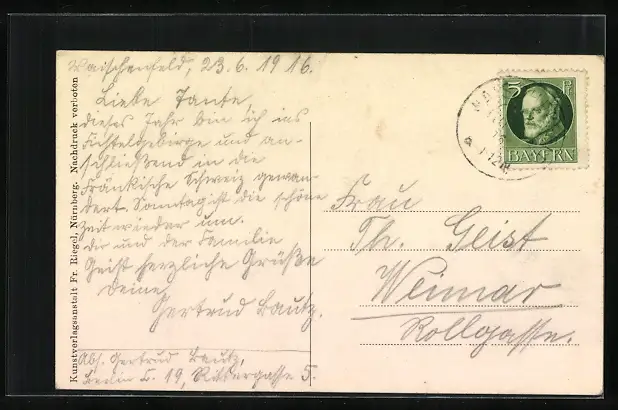 Waischenfeld, 23.6.1916.
Liebe Tante,
dieses Jahr bin ich ins
Fichtelgebirge und an-
schließend in die
Fränkische Schweiz gewan-
dert. Sonntag ist die schöne
Zeit wieder um.
Dir und der Familie
Geist herzliche Grüße
Deine
Gertrud Bautz.
Abs. Gertrud Bautz,
Berlin C. 19, Rittergasse 5.
Kunstverlagsanstalt Fr. Riegel, Nürnberg. Nachdruck verboten
5 Pf
BAYERN
Frau
Th. Geist
Weimar
Rollgasse.